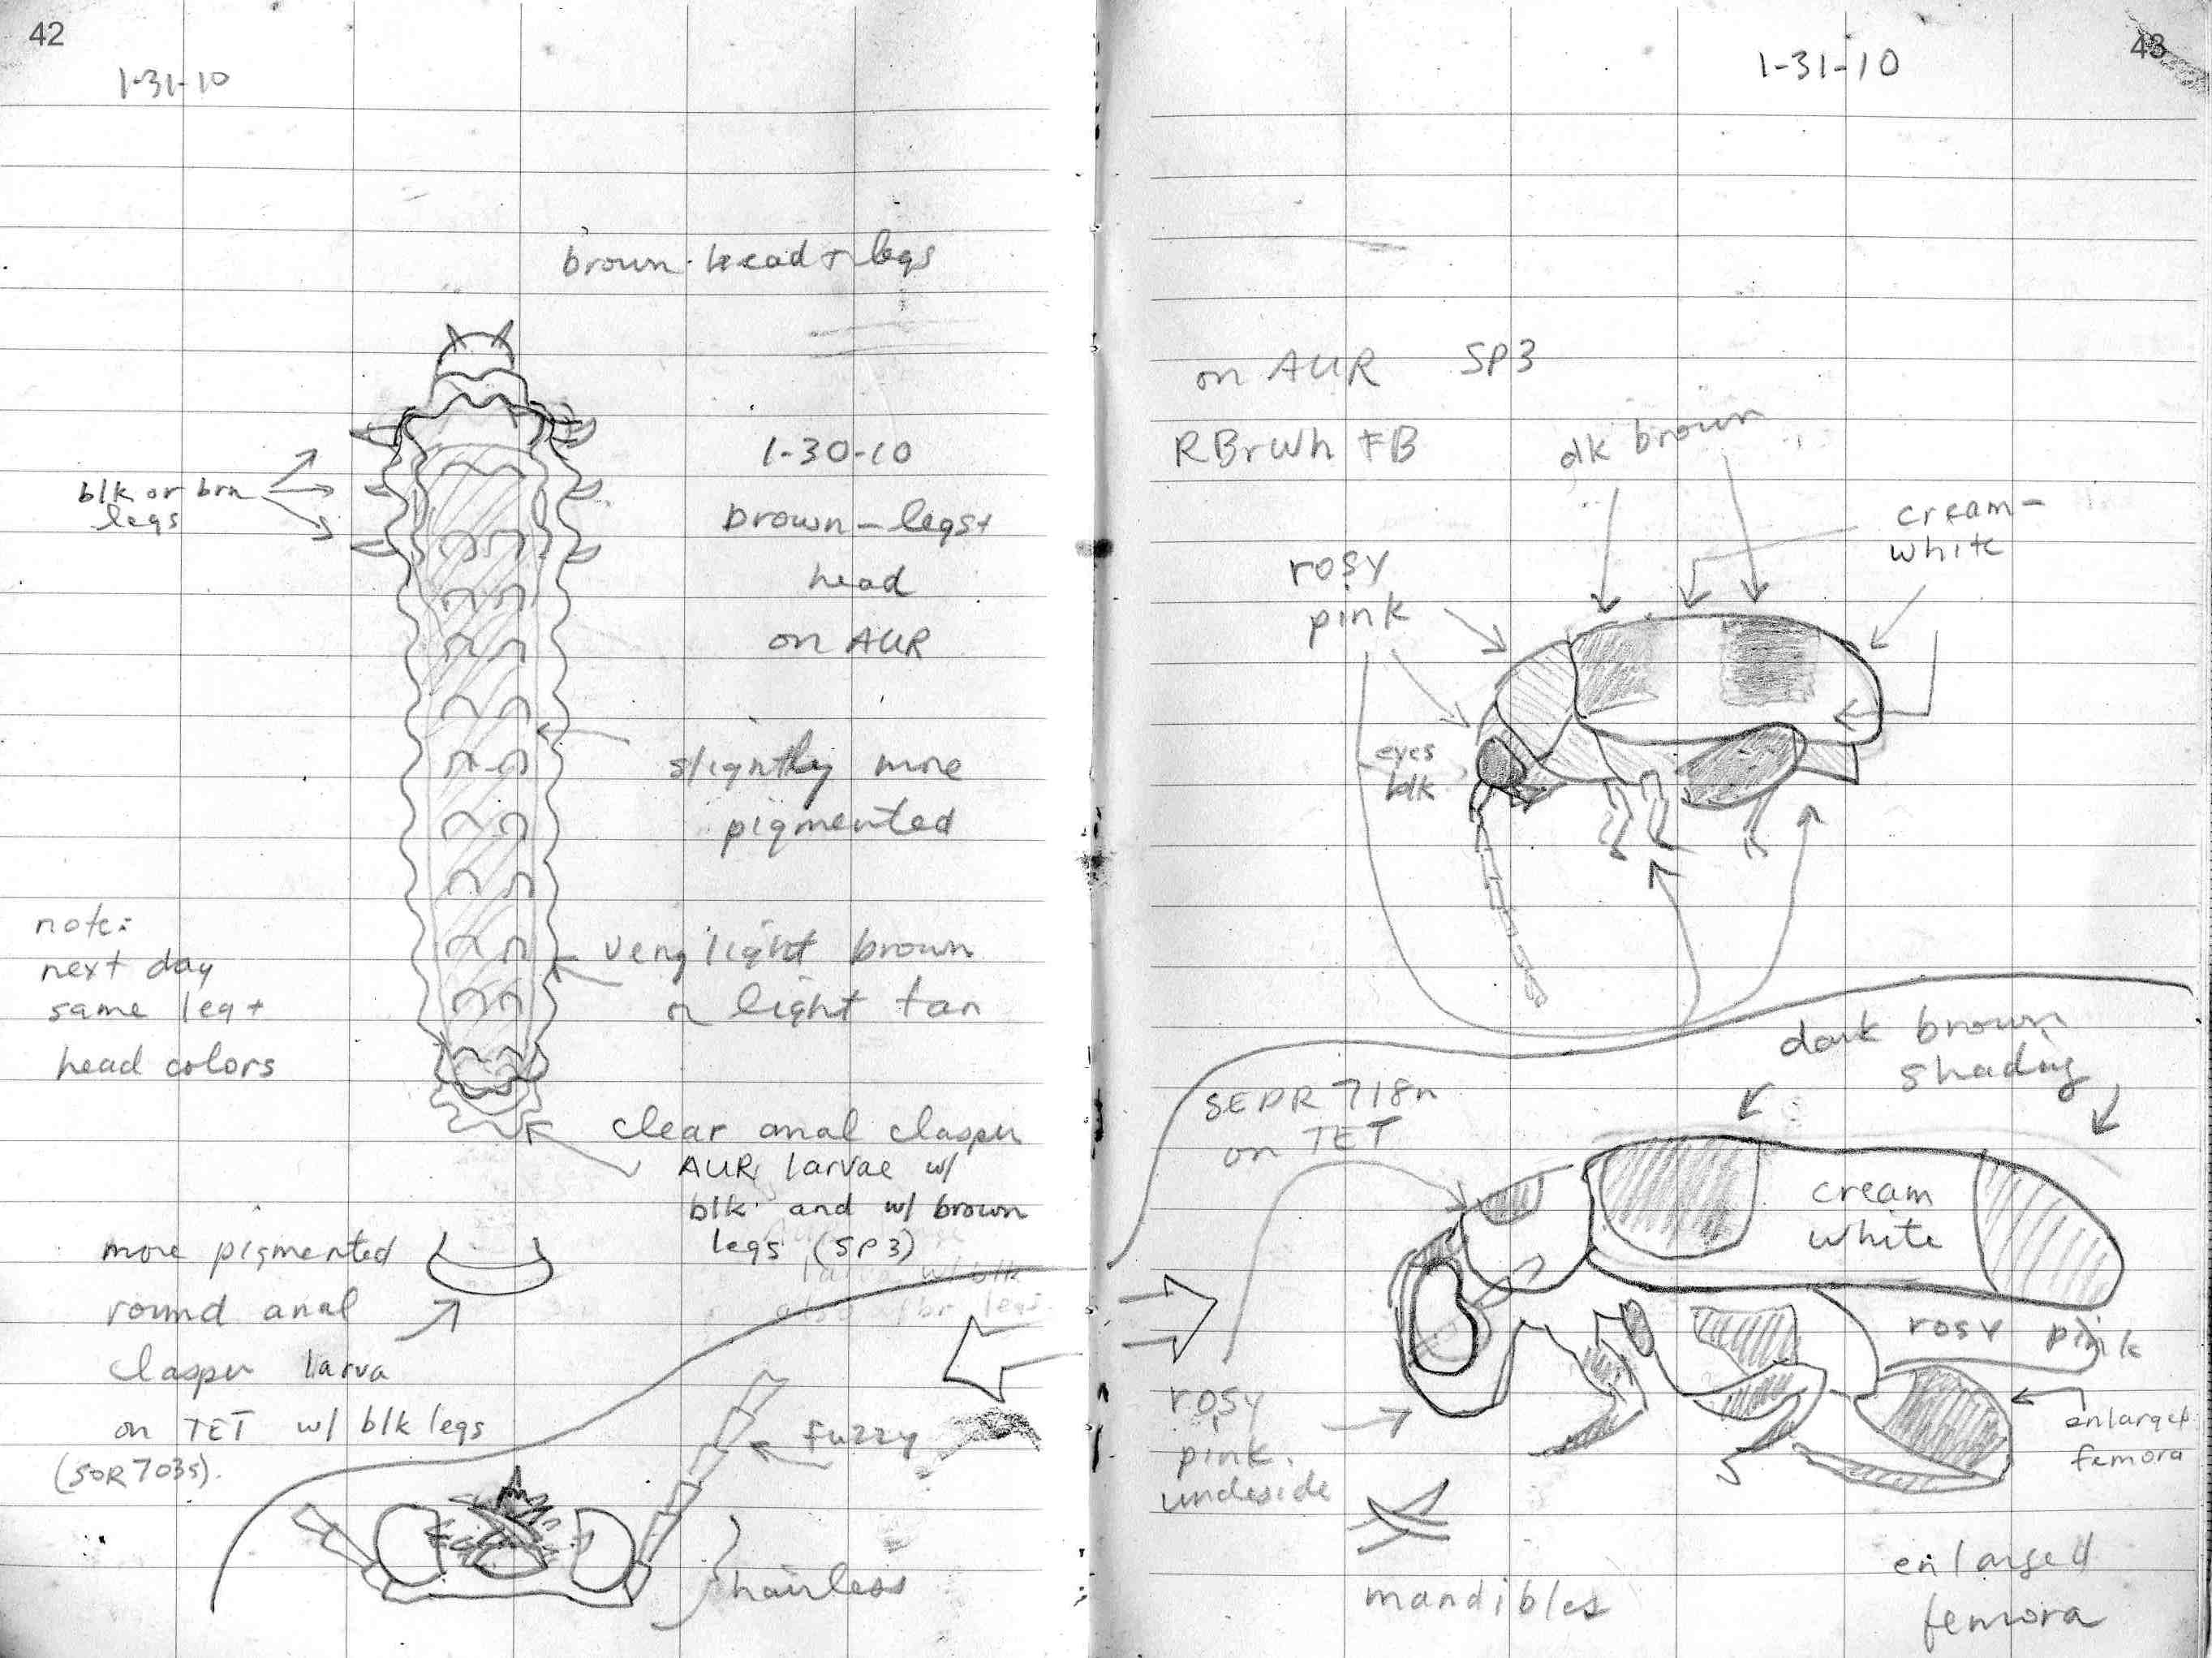 42
1-31-10
brown head + legs
blk or brn
legs
1-30-10
brown - legs +
head
on AUR
slightly more
pigmented
note:
next day
same leg +
head colors
very light brown
or light tan
clear anal clasper
AUR larvae w/
blk and w/ brown
legs (SP3)
more pigmented
round anal
clasper larva
on TET w/ blk legs
(SOR 7035).
fuzzy
hairless
43
1-31-10
on AUR SP3
RBrWh FB
dk brown
cream-
white
rosy
pink
eyes
blk
dark brown
shading
SEDR 718n
on TET
cream
white
rosy pink
enlarged
femora
rosy
pink
undeside
mandibles
enlarged
femora